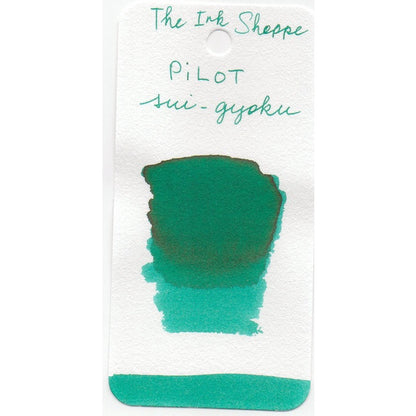 The Ink Shoppe
PiLOT
sui-gyoku